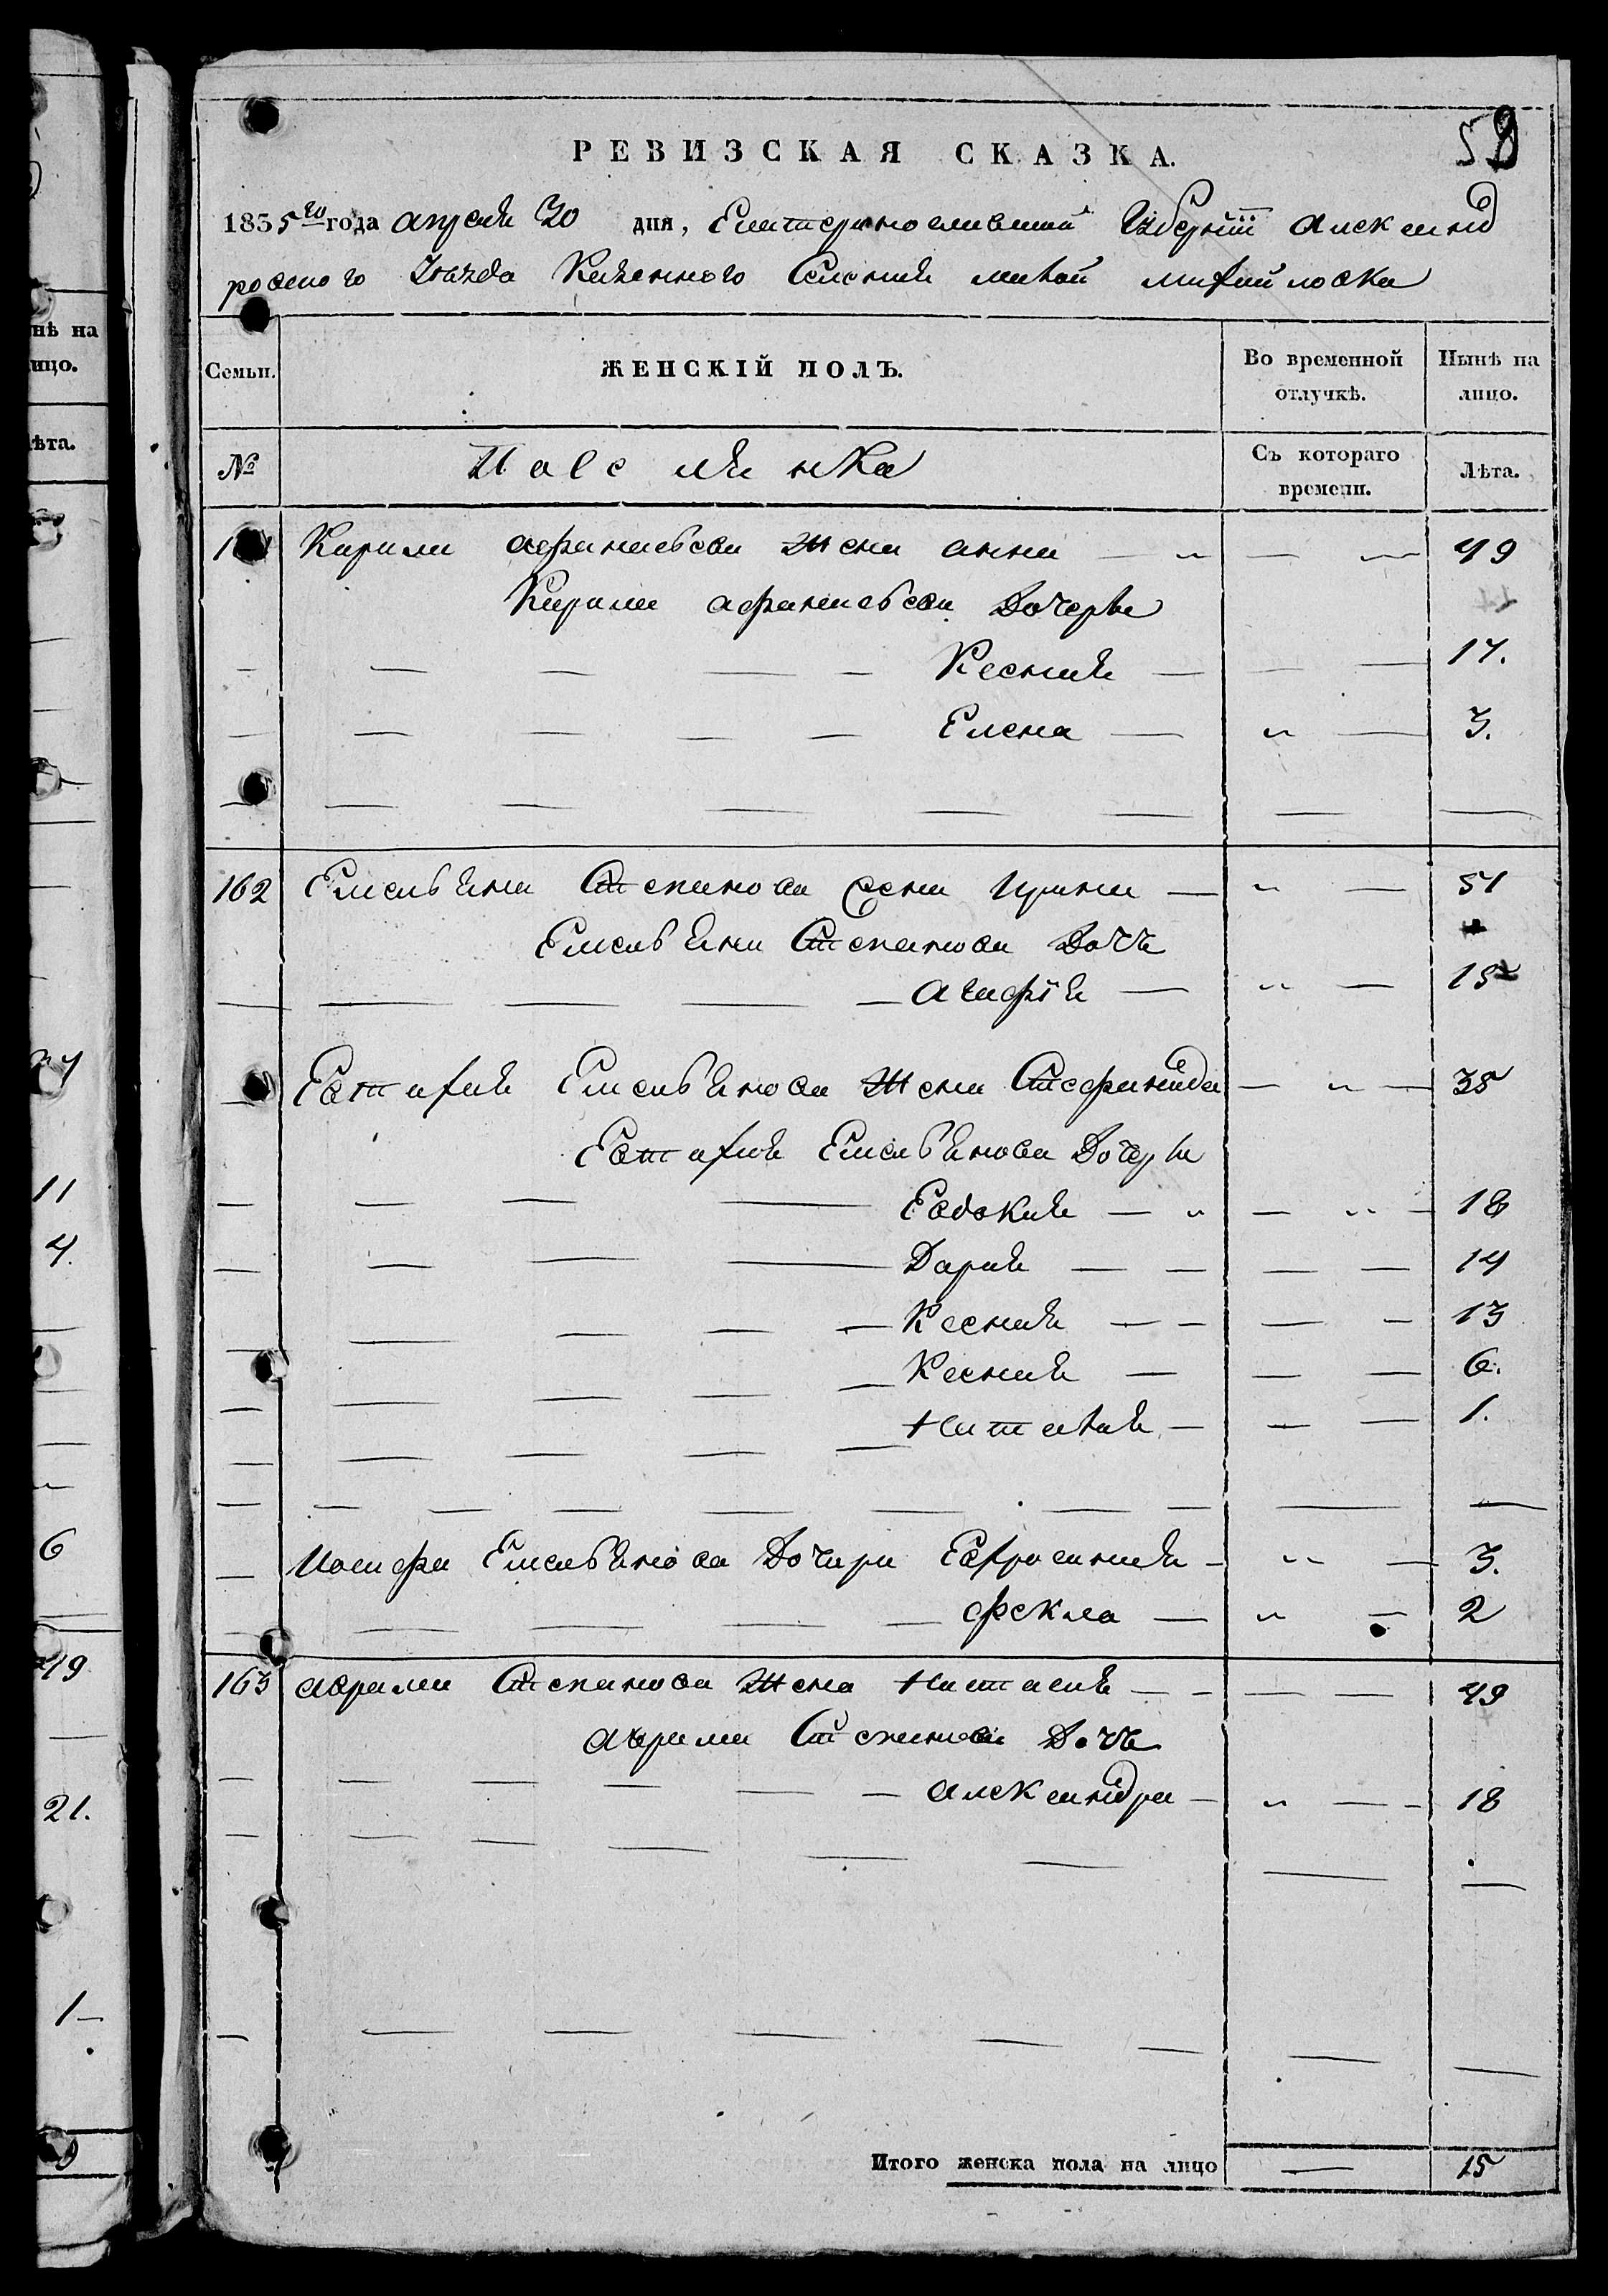 58
РЕВИЗСКАЯ СКАЗКА.
1835го года апреля 30 дня, Екатеринославской Губернiи Александ
ровского Уезда Казенного Селения малой михайловки
Семьи. ЖЕНСКІЙ ПОЛЪ. Во временной отлучкѣ. Нынѣ на лицо.
№ Съ котораго времени. Лѣта.
Кирила афанасьева Жена анна 49
Кирила афанасьева Дочеры
Ксения 17.
Елена 3.
162 Емельяна Степанова Жена Ирина 51
Емельяна Степанова Дочь
агафiя 15
Естафия Емельянова Жена Стефанида 35
Естафия Емельянова Дочеры
Евдокия 18
Дария 14
Ксения 13
Ксения 6.
Наталия 1.
Иосифа Емельянова Дочери Ефросиния 3.
фекла 2
163 аврама Степанова Жена Наталия 49
аврама Степанова Дочь
александра 18
Итого женска пола на лицо 15
нѣ на
ицо.
ѣта.
11
4.
6
19
21.
1